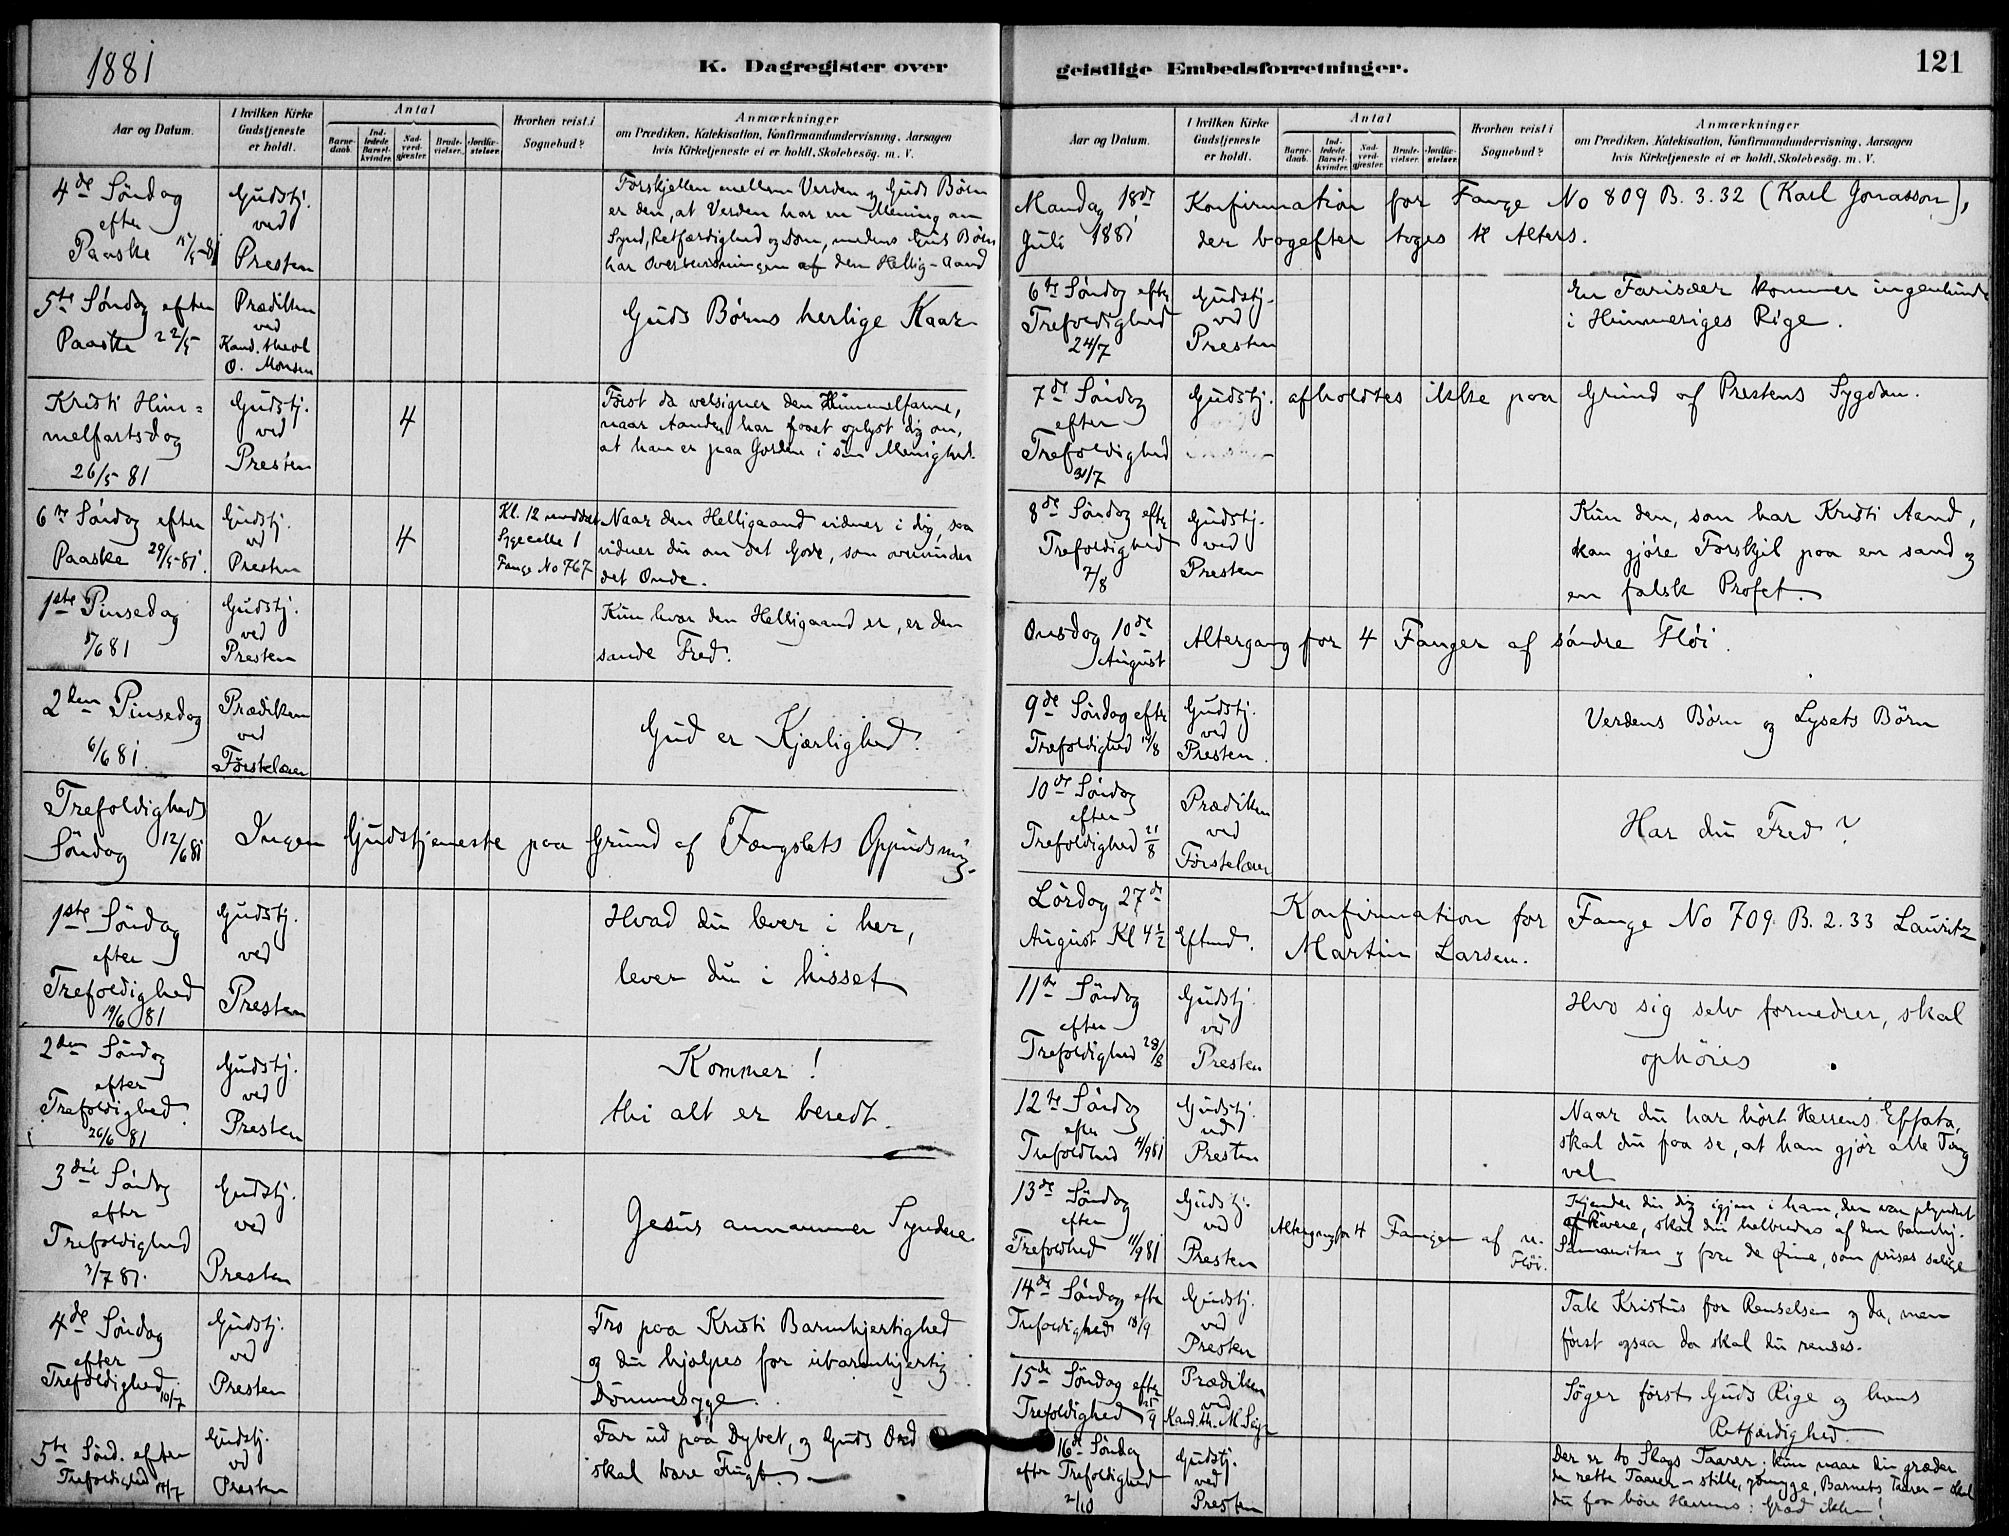 1881
K. Dagregister over
Aar og Datum.
I hvilken Kirke
Gudstjeneste
er holdt.
Antal
Barne-
daab.
Ind-
ledede
Barsel-
kvinder.
Nad-
verd-
gjæster.
Brude-
vielser.
Jordfæ-
stelser.
Hvorhen reist i
Sognebud?
Anmærkninger
om Prædiken, Katekisation, Konfirmandundervisning, Aarsagen
hvis Kirketjeneste ei er holdt, Skolebesög. m. V.
4de Söndag
efter
Paaske 15/5-81
Gudstj.
ved
Presten
Forskjellen mellem Verden og Guds Börn
er den, at Verden har en Mening om
Synd, Retfærdighed og Dom, medens Guds Börn
har Overbevisningen af den Hellig-Aand
5te Söndag efter
Paaske 22/5
Prædiken
ved
Kand. theol
O. Monsen
Guds Börns herlige Kaar
Kristi Him-
melfartsdag
26/5 81
Gudstj.
ved
Presten
4
Först da velsigner den Himmelfarne,
naar Aanden har faaet oplyst dig om,
at han er paa Jorden i sin Menighed.
6te Söndag efter
Paaske 29/5-81.
Gudstj.
ved
Presten
4
Kl. 12 middag
Sygecelle 1
Fange No 767
Naar den Helligaand vidner i dig, saa
vidner du om det Gode, som overvinder
det Onde.
1ste Pinsedag
5/6 81
Gudstj.
ved
Presten
Kun hvor den Helligaand er, er den
sande Fred.
2den Pinsedag
6/6 81.
Prædiken
ved
Förstelærer
Gud er Kjærlighed.
Trefoldigheds
Söndag 12/6 81
Ingen Gudstjeneste paa Grund af Fængslets Oppudsning.
1ste Söndag
efter
Trefoldighed
19/6 81
Gudstj.
ved
Presten
Hvad du lever i her,
lever du i hisset
2den Söndag
efter
Trefoldighed
26/6 81
Gudstj.
ved
Presten
Kommer!
thi alt er beredt.
3die Söndag
efter
Trefoldighed
3/7 81.
Gudstj.
ved
Presten
Jesus annammer Syndere.
4de Söndag
efter
Trefoldighed 10/7
Gudstj.
ved
Presten
Tro paa Kristi Barmhjertighed
og du hjælpes for ubarmhjertig
Dömmesyge.
5te Sönd. efter
Trefoldighed 17/7
Gudstj.
ved
Presten
Far ud paa Dybet, og Guds Ord
skal bære Frugt.
geistlige Embedsforretninger.
121
Aar og Datum.
I hvilken Kirke
Gudstjeneste
er holdt.
Antal
Barne-
daab.
Ind-
ledede
Barsel-
kvinder.
Nad-
verd-
gjæster.
Brude-
vielser.
Jordfæ-
stelser.
Hvorhen reist i
Sognebud?
Anmærkninger
om Prædiken, Katekisation, Konfirmandundervisning, Aarsagen
hvis Kirketjeneste ei er holdt, Skolebesög. m. V.
Mandag 18de
Juli 1881
Konfirmation for Fange No 809 B. 3.32 (Karl Jonasson),
der bagefter toges til Alters.
6te Söndag efter
Trefoldighed
24/7
Gudstj.
ved
Presten
En Farisæer kommer ingenlunde
i Himmeriges Rige.
7de Söndag
efter
Trefoldighed
31/7
Gudstj. afholdtes ikke paa Grund af Prestens Sygdom.
8de Söndag efter
Trefoldighed
7/8
Gudstj.
ved
Presten
Kun den, som har Kristi Aand,
kan gjöre Forskjel paa en sand og
en falsk Profet.
Onsdag 10de
August
Altergang for 4 Fanger af söndre Flöi.
9de Söndag efter
Trefoldighed 14/8
Gudstj.
ved
Presten
Verdens Börn og Lysets Börn
10de Söndag
efter
Trefoldighed 21/8
Prædiken
ved
Förstelærer
Har du Fred?
Lördag 27de
August Kl 4 1/2
Eftmd.
Konfirmation for Fange No 709. B. 2.33 Lauritz
Martin Larsen.
11te Söndag
efter
Trefoldighed 28/8
Gudstj.
ved
Presten
Hvo sig selv fornedrer, skal
ophöies
12te Söndag
efter
Trefoldhed 4/9 81
Gudstj.
ved
Presten
Naar du har hört Herrens Effata,
skal du faa se, at han gjör alle Ting
vel
13de Söndag
efter
Trefoldhed 11/9 81
Gudstj.
ved
Presten
Altergang for 4 Fanger af n.
Flöi.
Kjender du dig igjen i ham, den var plyndret
af Rövere, skal du helbredes af den barmhj.
Samaritan og faa de Öine, som prises salige
14de Söndag efter
Trefoldighed 18/9
Gudstj.
ved
Presten
Tak Kristus for Renselsen og da, men
först ogsaa da skal du renses.
15de Söndag efter
Trefoldighed 25/9
Prædiken
ved
Kand. th. M.
Söger först Guds Rige og hans
Retfærdighed.
16de Söndag
efter Trefoldighed
2/10
Gudstj.
ved
Presten
Der er to Slags Taarer; kun naar du græder
de rette Taarer - stille, Barnets Taarer - skal
du faa höre Herrens: Græd ikke!